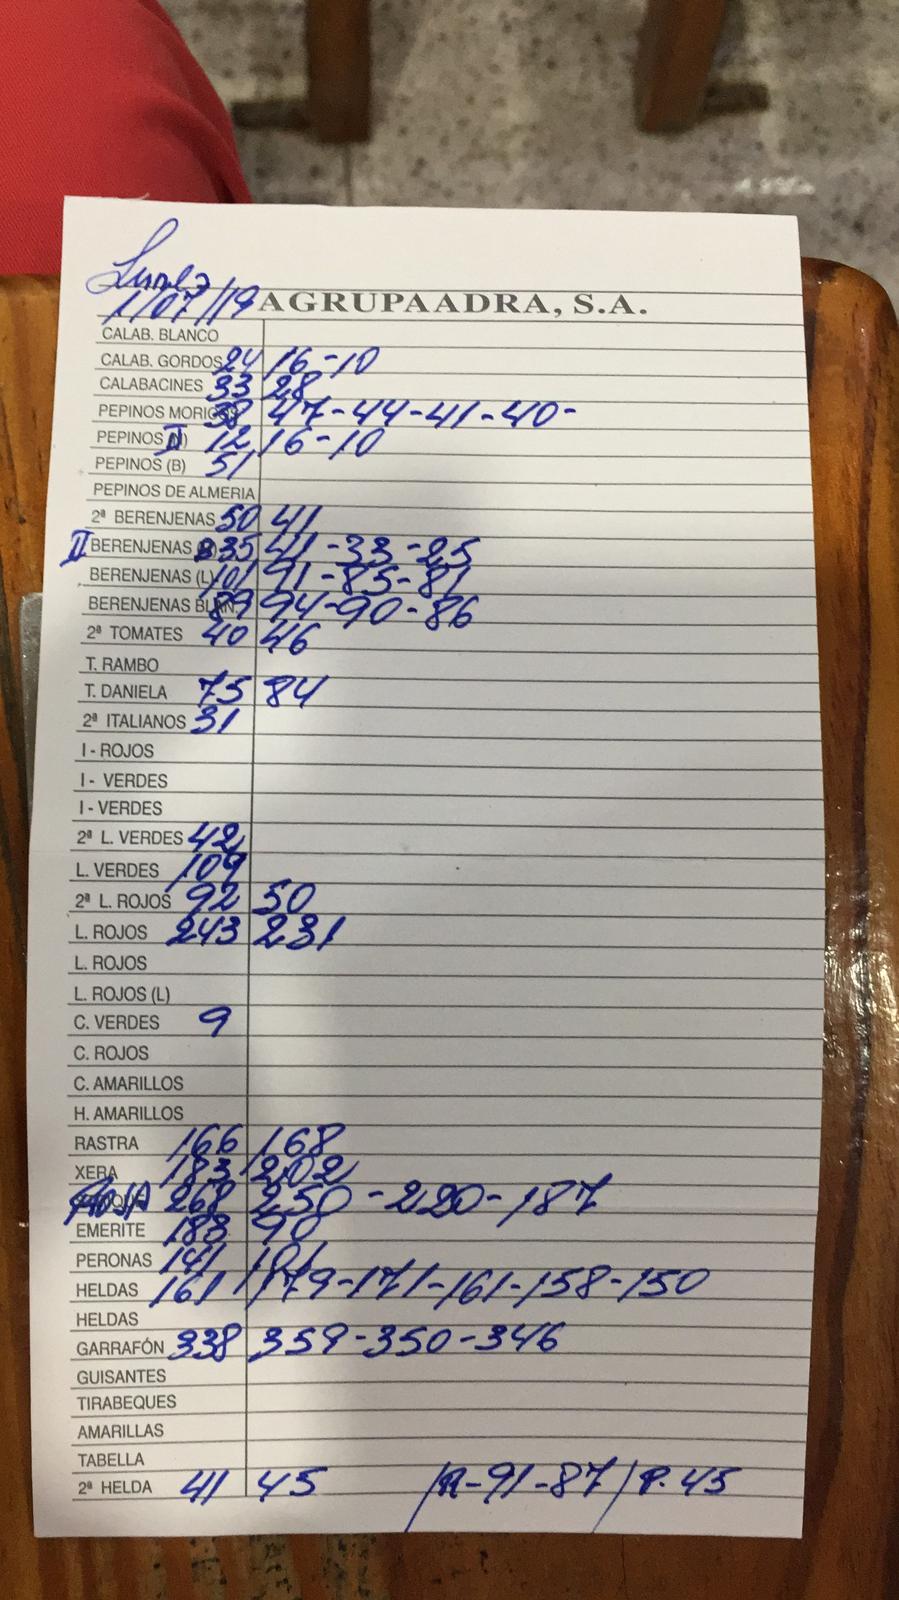 Lunes
1/07/19 AGRUPAADRA, S.A.
CALAB. BLANCO
CALAB. GORDOS 24 16-10
CALABACINES 33 28
PEPINOS 38 47-44-41-40-
PEPINOS II 12 16-10
PEPINOS (B) 51
PEPINOS DE ALMERIA
2ª BERENJENAS 50 41
II BERENJENAS 35 41-33-25
BERENJENAS (L) 101 91-85-81
BERENJENAS 89 94-90-86
2ª TOMATES 40 46
T. RAMBO
T. DANIELA 75 84
2ª ITALIANOS 31
I - ROJOS
I - VERDES
I - VERDES
2ª L. VERDES 42
L. VERDES 109
2ª L. ROJOS 92 50
L. ROJOS 243 231
L. ROJOS
L. ROJOS (L)
C. VERDES 9
C. ROJOS
C. AMARILLOS
H. AMARILLOS
RASTRA 166 168
XERA 183 202
ROJA 268 250-220-187
EMERITE 183 90
PERONAS 141 101
HELDAS 161 179-171-161-158-150
HELDAS
GARRAFÓN 338 359-350-346
GUISANTES
TIRABEQUES
AMARILLAS
TABELLA
2ª HELDA 41 45 /R-91-87/P.45